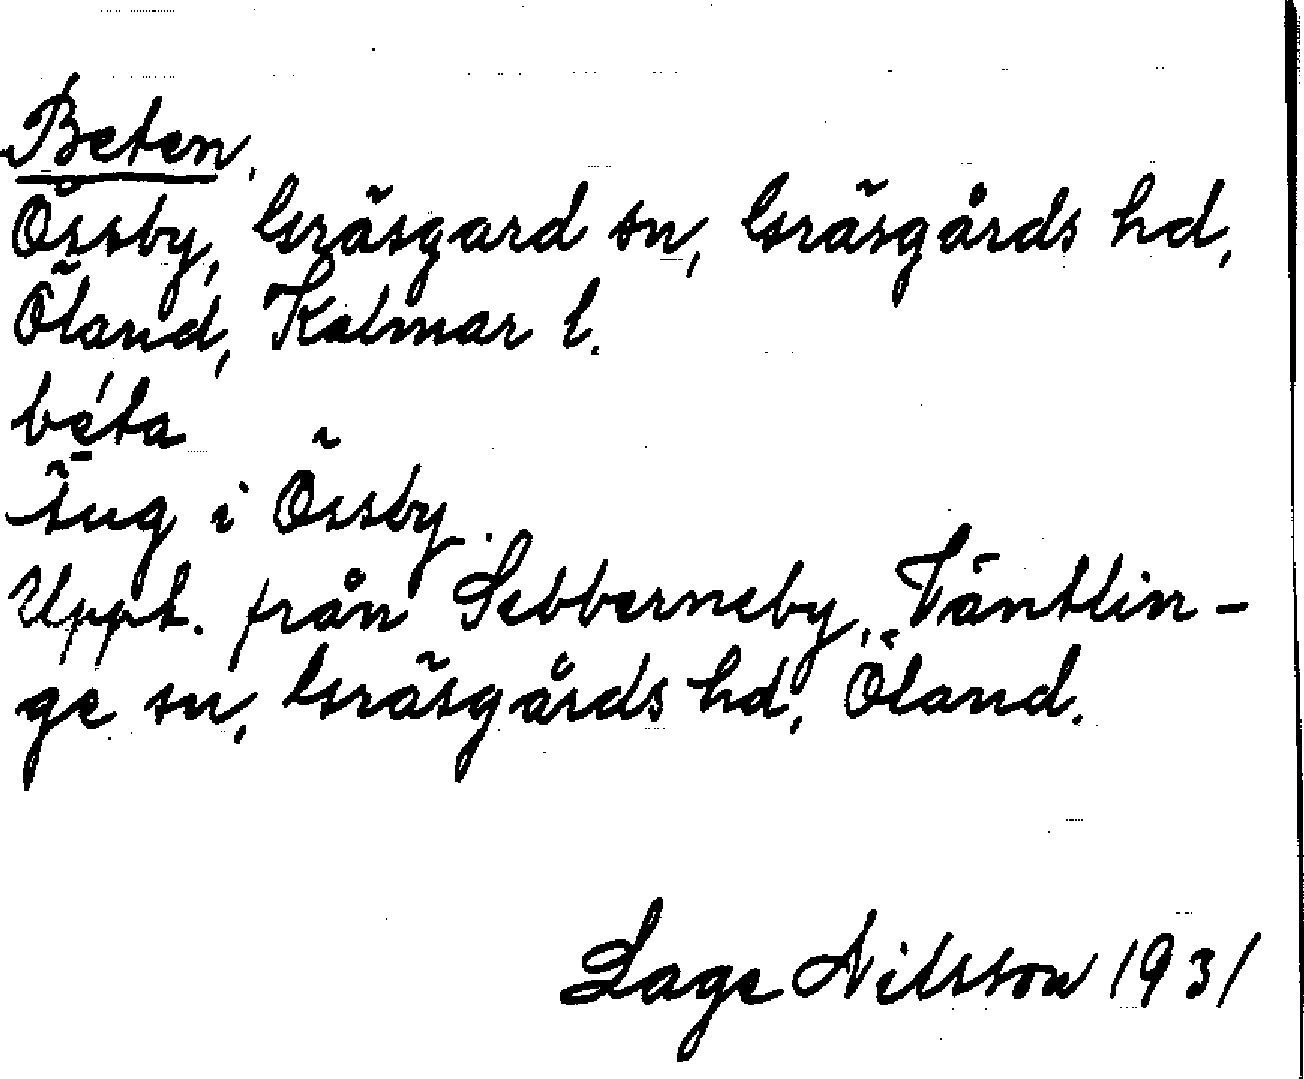 Beten,
Össby, Gräsgård sn, Gräsgårds hd,
Öland, Kalmar l.
béta
Äng i Össby.
Uppt. från Sebberneby, Ventlin-
ge sn, Gräsgårds hd, Öland.
Lage Nilsson 1931